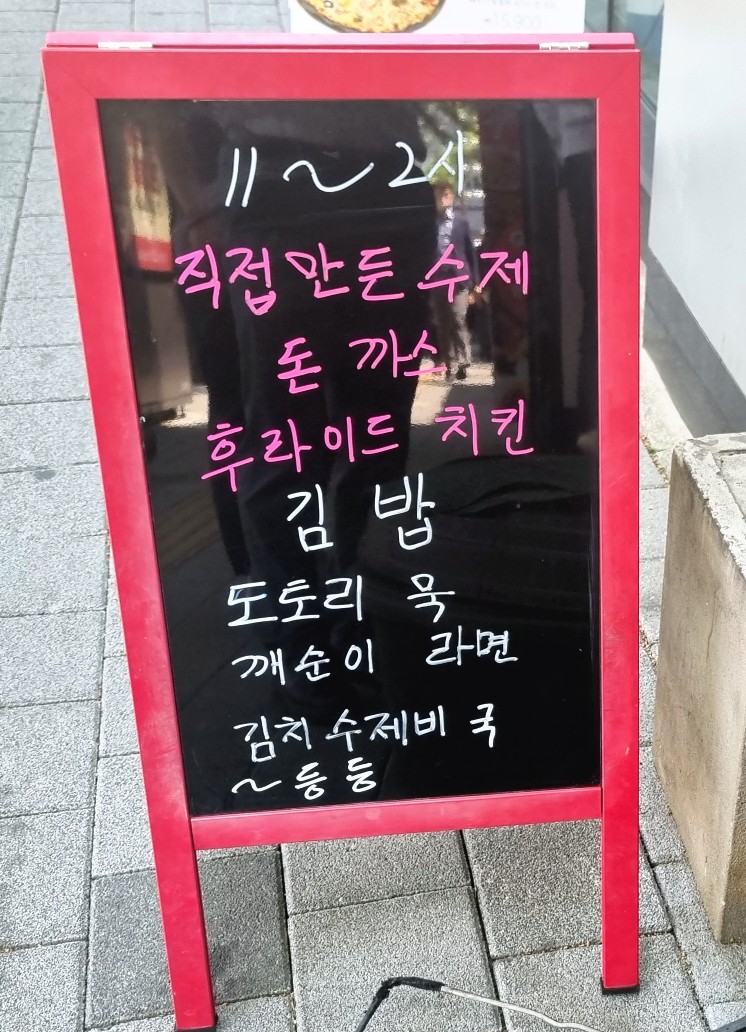 15,900
11 ~ 2시
직접 만든 수제
돈 까스
후라이드 치킨
김 밥
도토리 묵
깨순이 라면
김치 수제비 국
~ 등 등